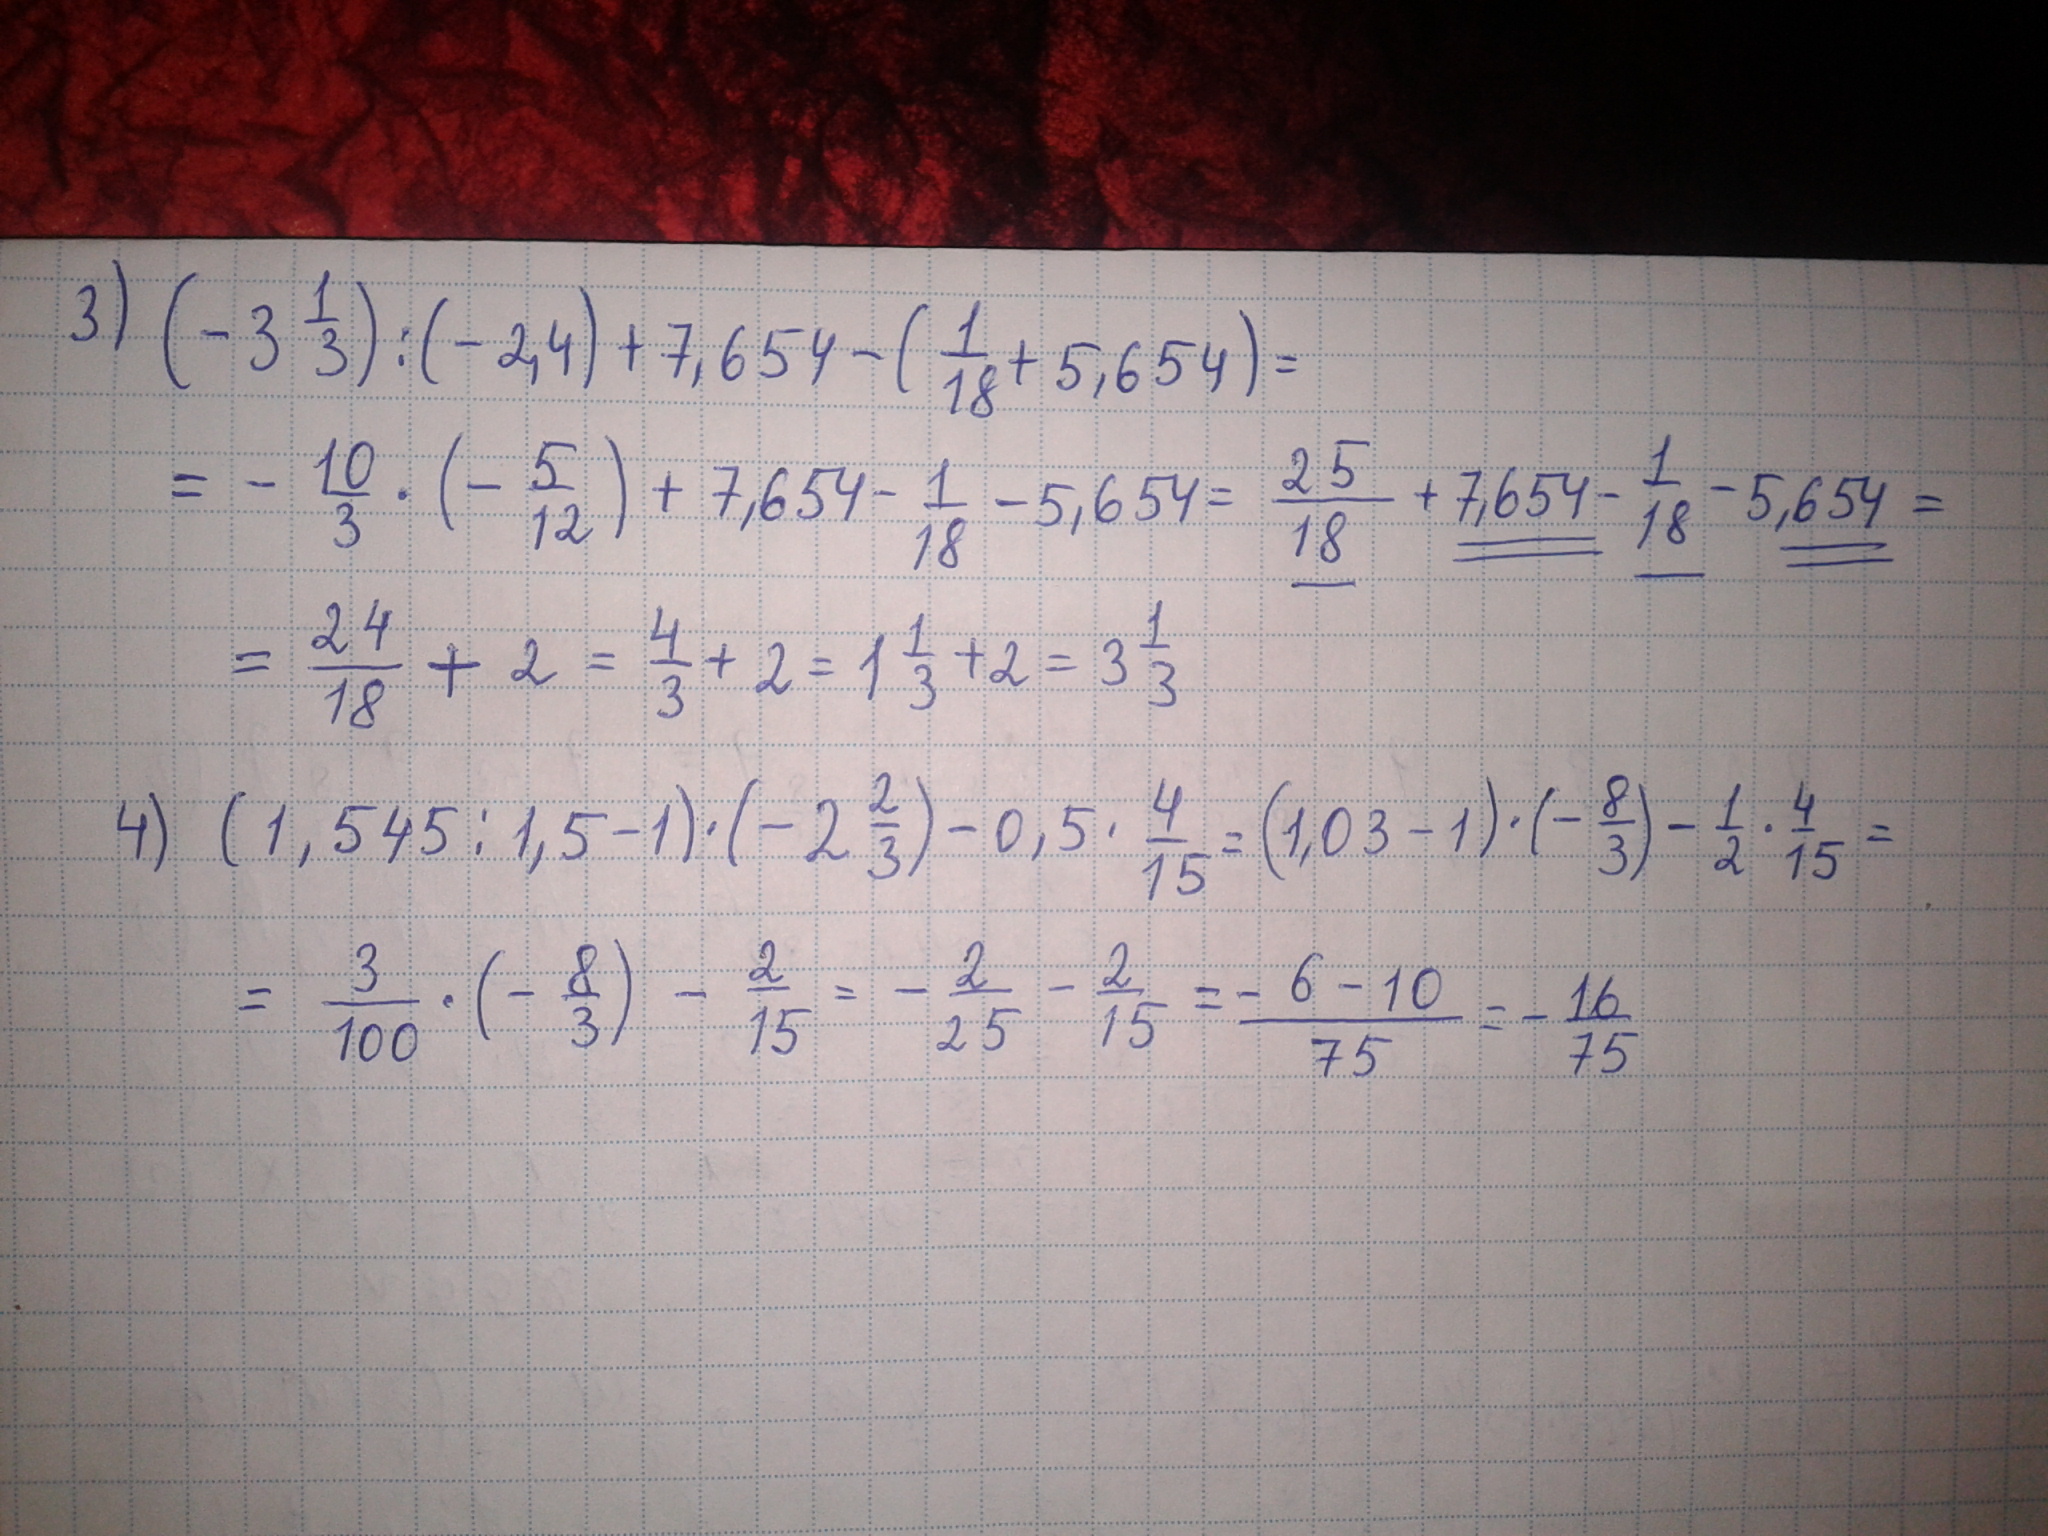 3) (-3 1/3) : (-2,4) + 7,654 - (1/18 + 5,654) =
= - 10/3 · (- 5/12) + 7,654 - 1/18 - 5,654 = 25/18 + 7,654 - 1/18 - 5,654 =
= 24/18 + 2 = 4/3 + 2 = 1 1/3 + 2 = 3 1/3
4) (1,545 : 1,5 - 1) · (-2 2/3) - 0,5 · 4/15 = (1,03 - 1) · (- 8/3) - 1/2 · 4/15 =
= 3/100 · (- 8/3) - 2/15 = - 2/25 - 2/15 = - 6 - 10/75 = - 16/75